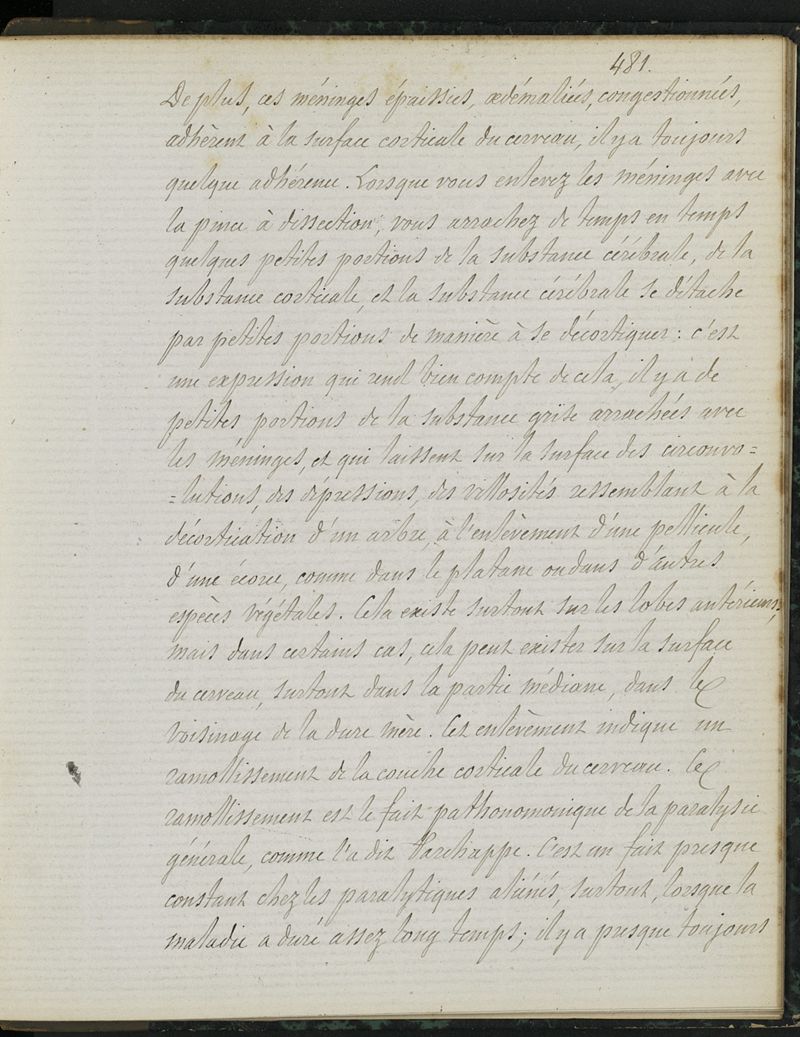 481.
De plus, ces méninges épaissies, œdématiées, congestionnées,
adhèrent à la surface corticale du cerveau, il y a toujours
quelque adhérence. Lorsque vous enlevez les méninges avec
la pince à dissection, vous arrachez de temps en temps
quelques petites portions de la substance cérébrale, de la
substance corticale, et la substance cérébrale se détache
par petites portions de manière à se décortiquer : c'est
une expression qui rend bien compte de cela, il y a de
petites portions de la substance grise arrachées avec
les méninges, et qui laissent sur la surface des circonvo=
=lutions, des dépressions, des villosités ressemblant à la
décortication d'un arbre, à l'enlèvement d'une pellicule,
d'une écorce, comme dans le platane ou dans d'autres
espèces végétales. Cela existe surtout sur les lobes antérieurs,
mais dans certains cas, cela peut exister sur la surface
du cerveau, surtout dans la partie médiane, dans le
voisinage de la dure mère. Cet enlèvement indique un
ramollissement de la couche corticale du cerveau. Ce
ramollissement est le fait pathonomonique de la paralysie
générale, comme l'a dit Parchappe. C'est un fait presque
constant chez les paralytiques aliénés, surtout, lorsque la
maladie a duré assez long temps ; il y a presque toujours